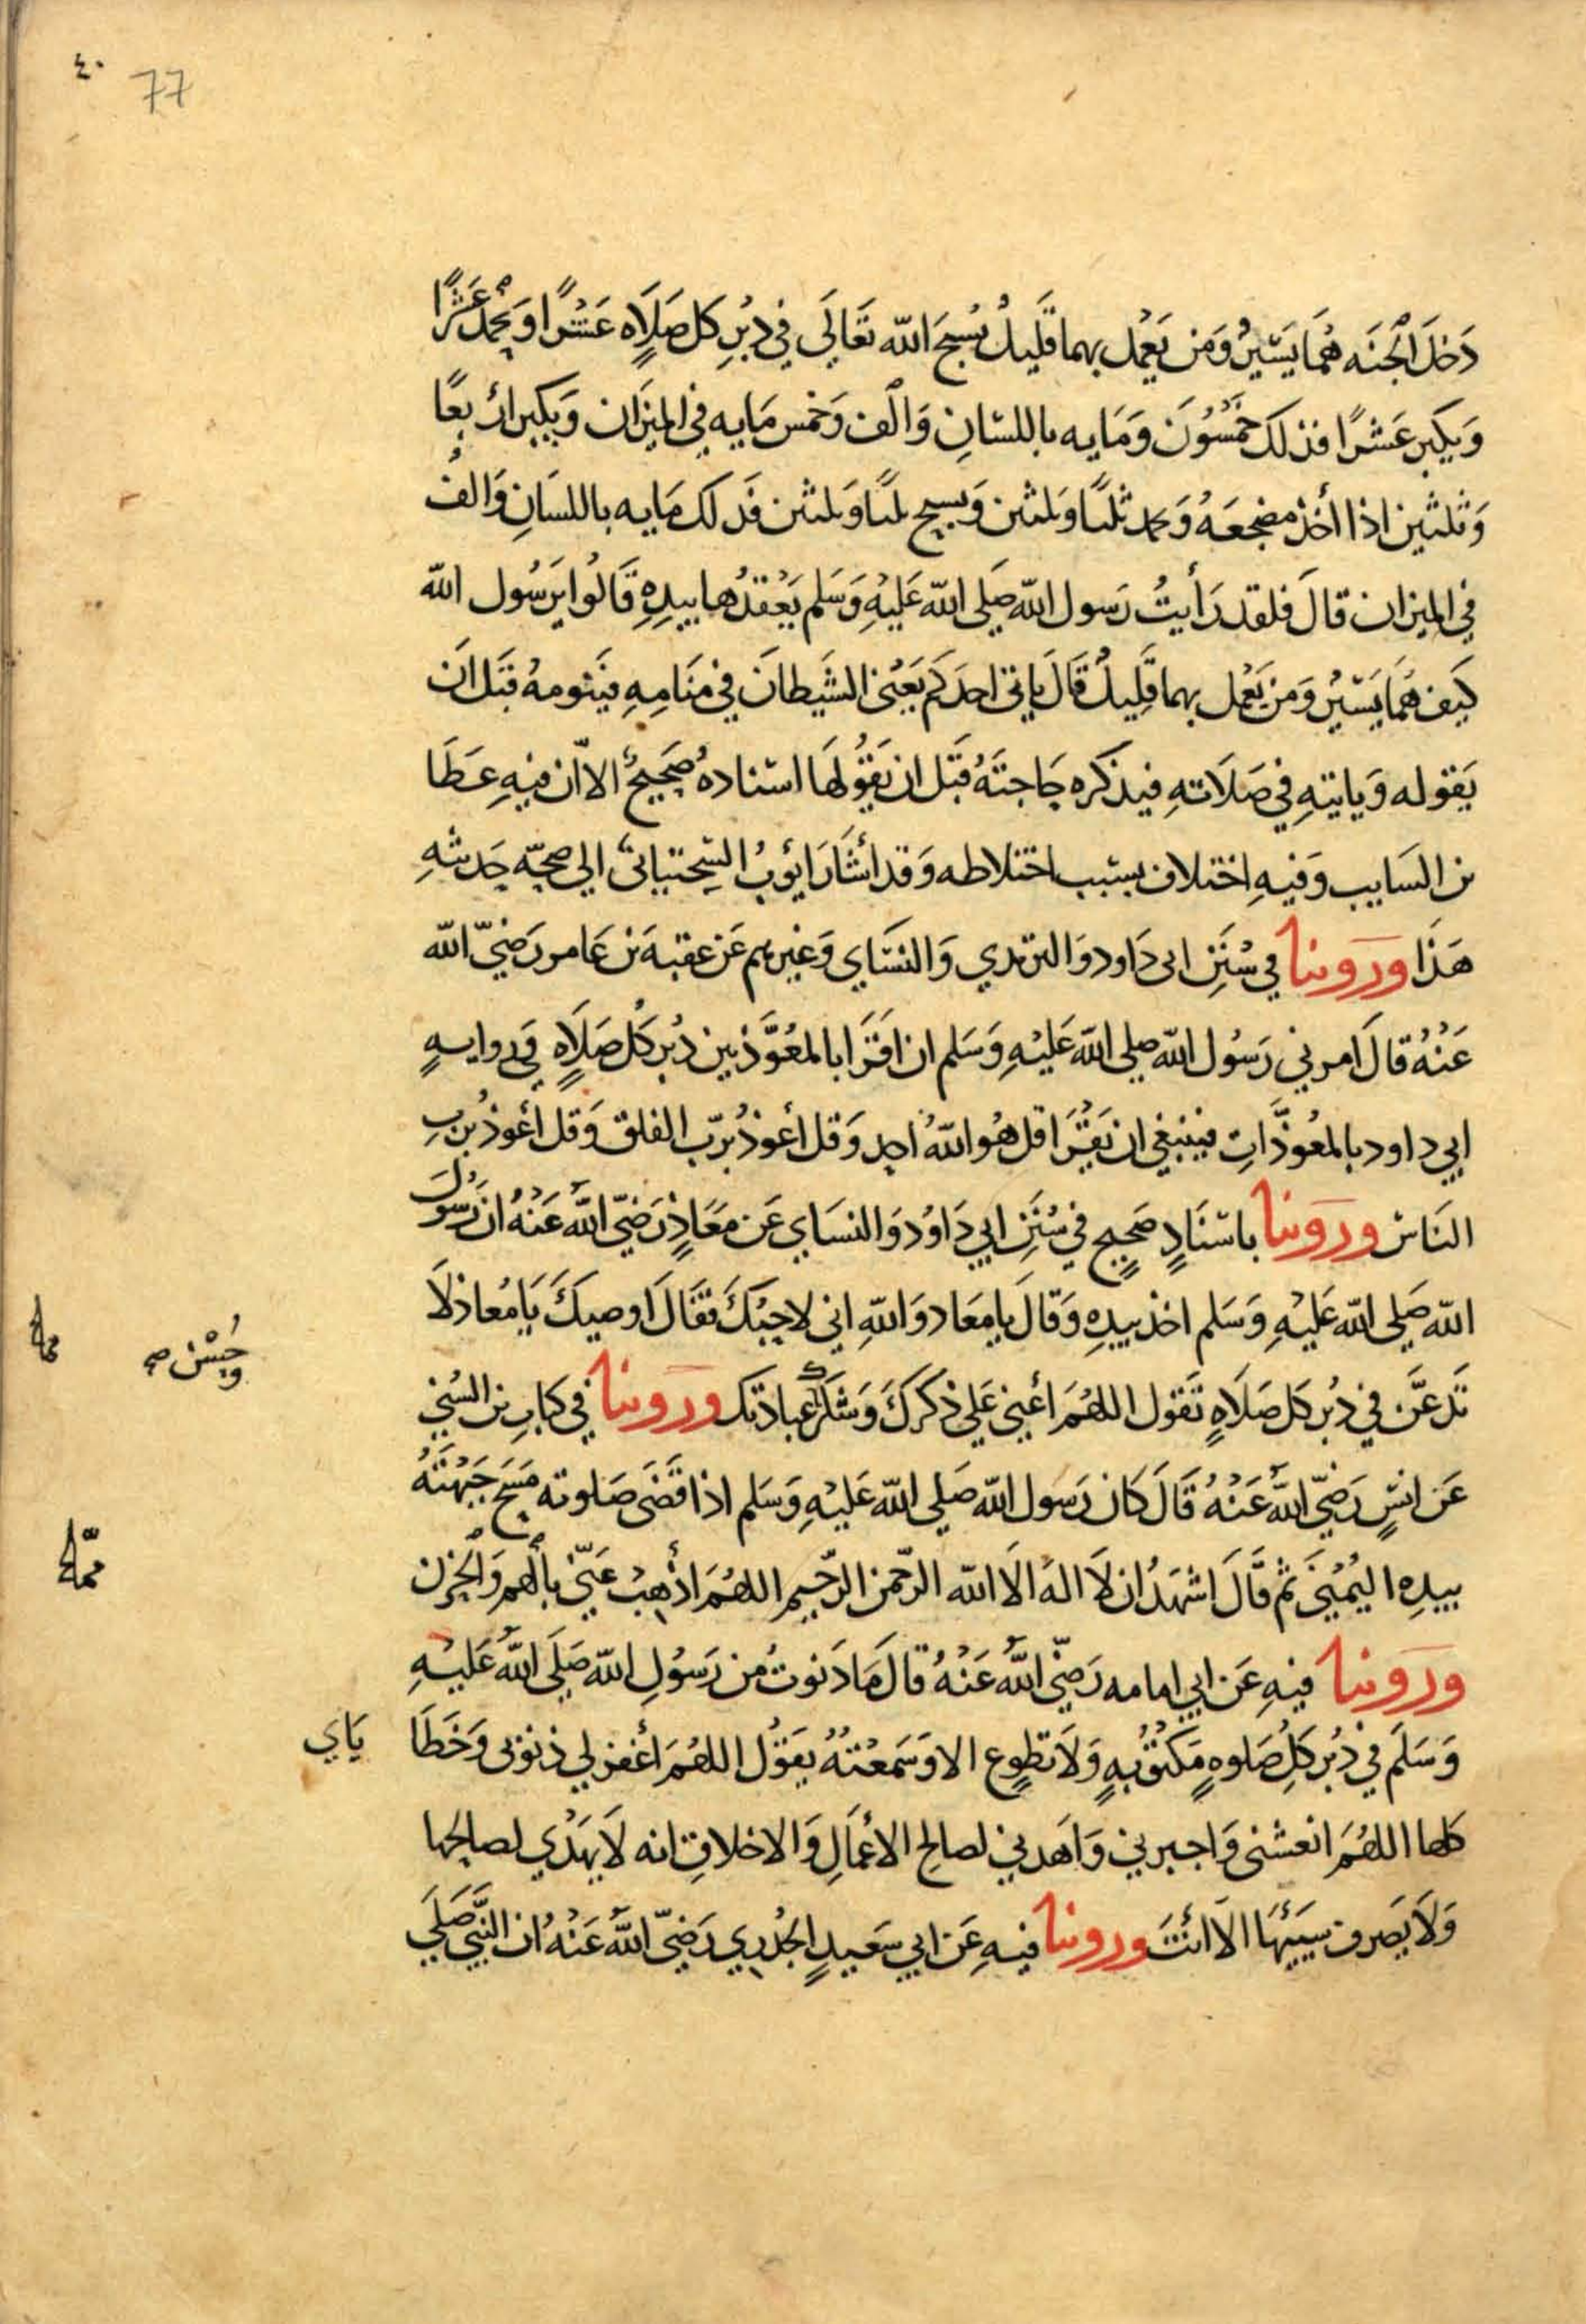 ٤٠
77
دَخَلَ الْجَنَه هُمَا يَسِيْرٌ وَمَن يَعْمَل بِهما قَليلٌ يُسبحَ الله تَعَالَي في دُبُرِ كل صَلَاهٍ عَشْرًا وَيحْمد عَشْرًا
وَيكبر عَشرًا فذلك خَمْسُونَ وَمَايه باللسانِ وَالف وَخمس مَايه في الميزان وَيكبر اربعًا
وَثلثين اذا أخذ مضجعَهُ وَيحمد ثلثًا وَثلثين وَيسبح ثلثًا وَثلثين فَذلك مَايه باللسَانِ وَالفٌ
في الميزان قالَ فلقد رَأيتُ رَسول الله صَلي الله عَليْهِ وَسَلم يَعْقدُها بيدِهِ قَالُوا يرَسُول الله
كَيف هُمَا يَسيْرٌ وَمن يَعْمل بهما قليلٌ قَالَ ياتي احدَكم يَعْني الشَيطانَ في مَنَامِهِ فيَنومهُ قبَل ان
يَقوله وَياتيهِ في صَلَاتهِ فيذكره حَاجتَهُ قبل ان يَقُولهَا اسناده صَحيحٌ الا ان فيهِ عَطَا
بن السَايب وَفيهِ اختلاف بسبب اختلاطه وَقد أشَارَ ايوبُ السِحتياني الي صحّه حَديثهِ
هَذَا وروينا في سُنَنِ ابي دَاود وَالترمدي وَالنسَاي وَغيرهم عَن عقبَه بن عَامر رَضيَ الله
عَنْهُ قالَ امرني رَسُول الله صلي الله عَليْهِ وَسَلم ان اقرَا بالمعُوَّذتين دُبر كُل صَلَاهٍ في روايهٍ
ابي داود بالمعُوذَّاتِ فينبغي ان يَقْرَا قل هُو اللهُ احد وَقل أعوذُ برَبّ الفلق وَقل أعُوذُ بربِ
النَاس وروينا باسنَادٍ صَحيحٍ في سُنَنِ ابي دَاوُدَ وَالنسَاي عَن معَاذٍ رَضيَ اللهُ عَنْهُ ان رَسُولَ
الله صَلي الله عَليْهِ وَسَلم اخذ بيدِهِ وَقالَ يا مِعَاد وَاللهِ اني لاحبُكَ فقَالَ اوصيكَ يَا مُعاذ لَا
تَدعَن في دُبر كل صَلَاهٍ تقول اللهُمَ أعِني عَلي ذكركَ وَشكرك عبادتك وروينا في كتابِ بن السُني
وَحُسْن صح
عَن انسٍ رَضيَ اللهُ عَنْهُ قَالَ كان رَسول الله صَلي الله عَليْهِ وَسَلم اذا قَضَي صَلوته مَسَح جَبْهَتهُ
بيدِه اليُمْنيَ ثم قَالَ اشهَدُ ان لَا اله الَا الله الرَحمن الرَّحيم اللهُمَ اذْهِبْ عَنّي بألهم وَالحزن
وروينا فيهِ عَن ابي امامه رَضيَ اللهُ عَنْهُ قالَ مَا دَنوتُ من رَسُولِ الله صَلَي اللهُ عَليْهِ
وَسَلَم في دُبر كلِ صَلوهٍ مَكتوُبهٍ وَلَا تطوع الا وَسَمعْتهُ يقوُل اللهُمَ أغفر لي ذنوبي وَخَطَا
يَاي
كلها اللهُمَ انعشني وَاجبرني وَاهدني لصالح الأعْمَالِ وَالاخلاقِ انه لَا يَهْدي لصالحها
وَلَا يَصرف سَيئهَا الَا انْتَ وروينا فيهِ عَن ابي سَعيدٍ الخدري رَضيَ اللهُ عَنْهُ ان النَبّيَ صَلَي